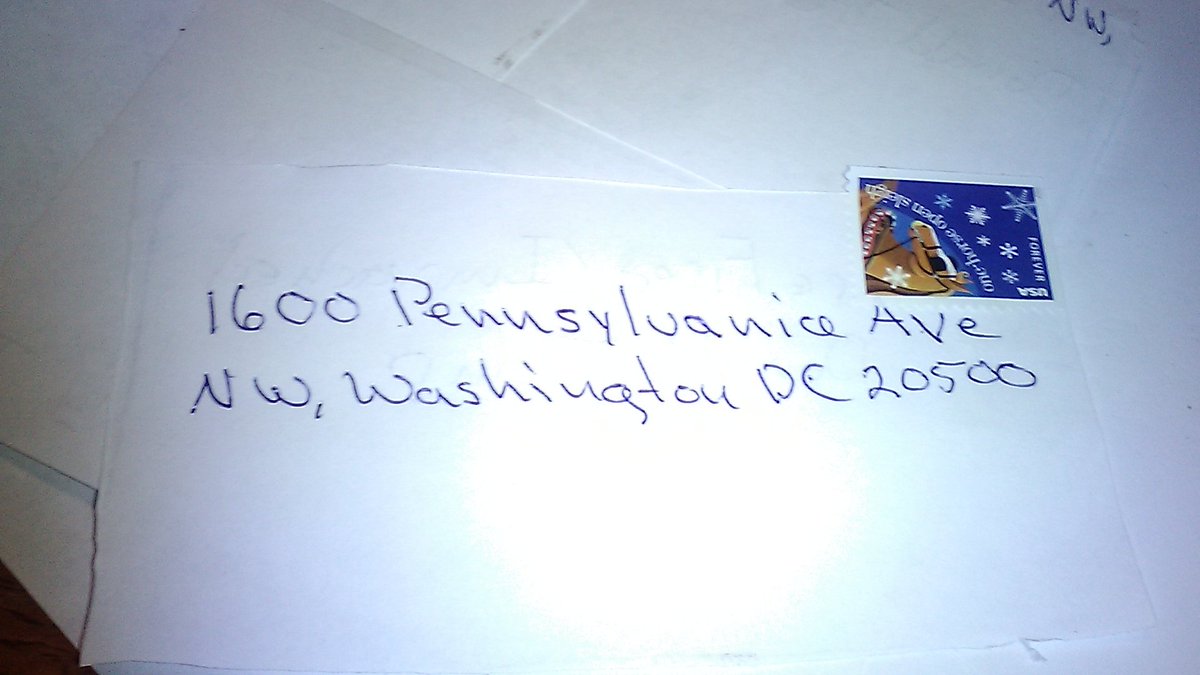 NW,
one-horse open sleigh
FOREVER
USA
1600 Pennsylvania Ave
NW, Washington DC 20500